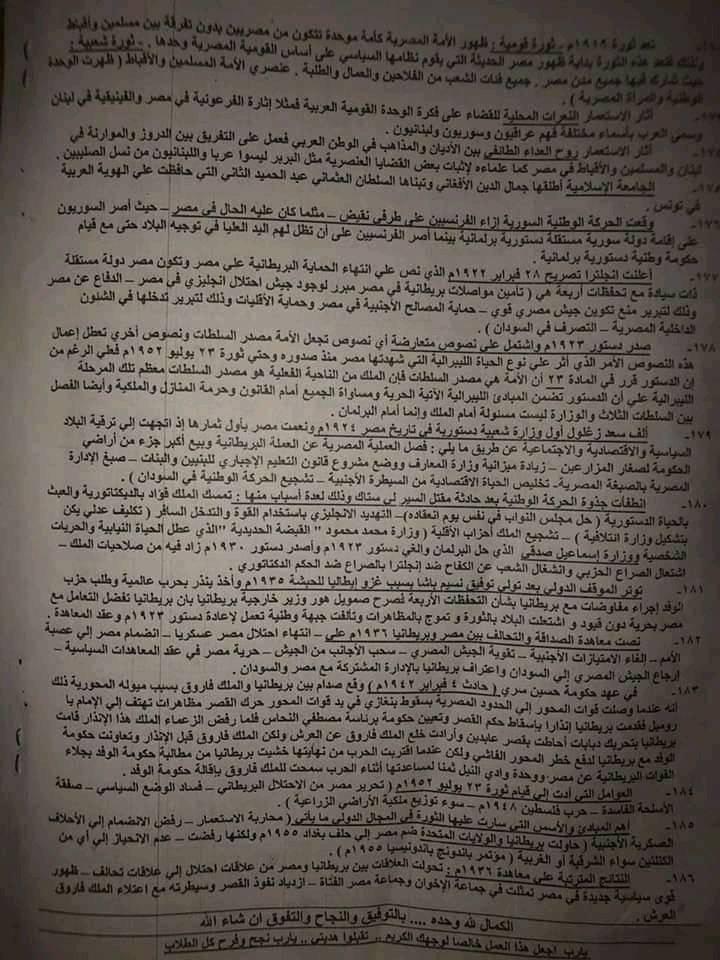 تعد ثورة ١٩١٩م - ثورة قومية : ظهور الأمة المصرية كأمة موحدة تتكون من مصريين بدون تفرقة بين مسلمين وأقباط
ولذلك فتعد هذه الثورة بداية ظهور مصر الحديثة التي يقوم نظامها السياسي على أساس القومية المصرية وحدها . - ثورة شعبية :
حيث شارك فيها جميع مدن مصر . جميع فئات الشعب من الفلاحين والعمال والطلبة . عنصري الأمة المسلمين والأقباط ( ظهرت الوحدة
الوطنية والمرأة المصرية ) .
أثار الاستعمار النعرات المحلية للقضاء على فكرة الوحدة القومية العربية فمثلا إثارة الفرعونية في مصر والفينيقية في لبنان
وسمى العرب بأسماء مختلفة فهم عراقيون وسوريون ولبنانيون .
أثار الاستعمار روح العداء الطائفي بين الأديان والمذاهب في الوطن العربي فعمل على التفريق بين الدروز والموارنة في
لبنان والمسلمين والأقباط في مصر كما علماءه لإثبات بعض القضايا العنصرية مثل البربر ليسوا عربا واللبنانيون من نسل الصليبين .
١٧٥- الجامعة الإسلامية أطلقها جمال الدين الأفغاني وتبناها السلطان العثماني عبد الحميد الثاني التي حافظت علي الهوية العربية
في تونس .
١٧٦- وقعت الحركة الوطنية السورية إزاء الفرنسيين على طرفي نقيض – مثلما كان عليه الحال في مصر – حيث أصر السوريون
على إقامة دولة سورية مستقلة دستورية برلمانية بينما أصر الفرنسيين على أن تظل لهم اليد العليا في توجيه البلاد حتى مع قيام
حكومة وطنية دستورية برلمانية .
١٧٧- أعلنت إنجلترا تصريح ٢٨ فبراير ١٩٢٢م الذي نص علي انتهاء الحماية البريطانية علي مصر وتكون مصر دولة مستقلة
ذات سيادة مع تحفظات أربعة هي ( تأمين مواصلات بريطانية في مصر مبرر لوجود جيش احتلال انجليزي في مصر – الدفاع عن مصر
وذلك لتبرير منع تكوين جيش مصري قوي – حماية المصالح الأجنبية في مصر وحماية الأقليات وذلك لتبرير تدخلها في الشئون
الداخلية المصرية – التصرف في السودان ) .
١٧٨- صدر دستور ١٩٢٣م واشتمل علي نصوص متعارضة أي نصوص تجعل الأمة مصدر السلطات ونصوص أخري تعطل إعمال
هذه النصوص الأمر الذي أثر علي نوع الحياة الليبرالية التي شهدتها مصر منذ صدوره وحتي ثورة ٢٣ يوليو ١٩٥٢م فعلي الرغم من
إن الدستور قرر في المادة ٢٣ أن الأمة هي مصدر السلطات فإن الملك من الناحية الفعلية هو مصدر السلطات معظم تلك المرحلة
الليبرالية علي أن الدستور تضمن المبادئ الليبرالية الآتية الحرية ومساواة الجميع أمام القانون وحرمة المنازل والملكية وأيضا الفصل
بين السلطات الثلاث والوزارة ليست مسئولة أمام الملك وإنما أمام البرلمان .
١٧٩- ألف سعد زغلول أول وزارة شعبية دستورية في تاريخ مصر ١٩٢٤م ونعمت مصر بأول ثمارها إذ اتجهت إلي ترقية البلاد
السياسية والاقتصادية والاجتماعية عن طريق ما يلي : فصل العملية المصرية عن العملة البريطانية وبيع أكبر جزء من أراضي
الحكومة لصغار المزارعين – زيادة ميزانية وزارة المعارف ووضع مشروع قانون التعليم الإجباري للبنيين والبنات – صبغ الإدارة
المصرية بالصبغة المصرية- تخليص الحياة الاقتصادية من السيطرة الأجنبية – تشجيع الحركة الوطنية في السودان ) .
١٨٠- إنطفأت جذوة الحركة الوطنية بعد حادثة مقتل السير لي ستاك وذلك لعدة أسباب منها : تمسك الملك فؤاد بالديكتاتورية والعبث
بالحياة الدستورية ( حل مجلس النواب في نفس يوم انعقاده)– التهديد الانجليزي باستخدام القوة والتدخل السافر ( تكليف عدلي يكن
بتشكيل وزارة ائتلافية ) – تشجيع الملك أحزاب الأقلية ( وزارة محمد محمود " القبضة الحديدية "الذي عطل الحياة النيابية والحريات
الشخصية ووزارة إسماعيل صدقي الذي حل البرلمان والغي دستور ١٩٢٣م وأصدر دستور ١٩٣٠م زاد فيه من صلاحيات الملك –
اشتعال الصراع الحزبي وانشغال الشعب عن الكفاح ضد إنجلترا بالصراع ضد الحكم الدكتاتوري .
١٨١- توتر الموقف الدولي بعد تولي توفيق نسيم باشا بسبب غزو إيطاليا للحبشة ١٩٣٥م وأخذ ينذر بحرب عالمية وطلب حزب
الوفد إجراء مفاوضات مع بريطانيا بشأن التحفظات الأربعة فصرح صمويل هور وزير خارجية بريطانيا بان بريطانيا تفضل التعامل مع
مصر بحرية دون قيود و اشتعلت البلاد بالثورة و تموج بالمظاهرات وتألفت جبهة وطنية تعمل لإعادة دستور ١٩٢٣م وعقد المعاهدة .
١٨٢- نصت معاهدة الصداقة والتحالف بين مصر وبريطانيا ١٩٣٦م علي – انتهاء احتلال مصر عسكريا – انضمام مصر إلي عصبة
الأمم – إلغاء الامتيازات الأجنبية – تقوية الجيش المصري – سحب الأجانب من الجيش – حرية مصر في عقد المعاهدات السياسية –
إرجاع الجيش المصري إلي السودان واعتراف بريطانيا بالإدارة المشتركة مع مصر والسودان .
١٨٣- في عهد حكومة حسين سري ( حادث ٤ فبراير ١٩٤٢م ) وقع صدام بين بريطانيا والملك فاروق بسبب ميوله المحورية ذلك
أنه عندما وصلت قوات المحور إلي الحدود المصرية بسقوط بنغازي في يد قوات المحور حرك القصر مظاهرات تهتف إلي الإمام يا
روميل فقدمت بريطانيا إنذارا بإسقاط حكم القصر وتعيين حكومة برناسة مصطفي النحاس فلما رفض الزعماء الملك هذا الإنذار قامت
بريطانيا بتحريك دبابات أحاطت بقصر عابدين وأرادت خلع الملك فاروق عن العرش ولكن الملك فاروق قبل الإنذار وتعاونت حكومة
الوفد مع بريطانيا لدفع خطر المحور الفاشي ولكن عندما اقتربت الحرب من نهايتها خشيت بريطانيا من مطالبة حكومة الوفد بجلاء
القوات البريطانية عن مصر ووحدة وادي النيل ثمنا لمساعدتها أثناء الحرب سمحت للملك فاروق بإقالة حكومة الوفد .
١٨٤- العوامل التي أدت إلي قيام ثورة ٢٣ يوليو ١٩٥٢م ( تحرير مصر من الاحتلال البريطاني – فساد الوضع السياسي – صفقة
الأسلحة الفاسدة – حرب فلسطين ١٩٤٨م – سوء توزيع ملكية الأراضي الزراعية ) .
١٨٥- أهم المبادئ والأسس التي سارت عليها الثورة في المجال الدولي ما يأتي ( محاربة الاستعمار – رفض الانضمام إلي الأحلاف
العسكرية الأجنبية ( حاولت بريطانيا والولايات المتحدة ضم مصر إلي حلف بغداد ١٩٥٥م ولكنها رفضت – عدم الانحياز إلي أي من
الكتلتين سواء الشرقية أو الغربية ( مؤتمر باندونج باندونيسيا ١٩٥٥م ) .
١٨٦- النتائج المترتبة علي معاهدة ١٩٣٦م : تحولت العلاقات بين بريطانيا ومصر من علاقات احتلال إلي علاقات تحالف – ظهور
قوى سياسية جديدة في مصر تمثلت في جماعة الإخوان وجماعة مصر الفتاة – ازدياد نفوذ القصر وسيطرته مع اعتلاء الملك فاروق
العرش .
الكمال لله وحده .... بالتوفيق والنجاح والتفوق ان شاء الله
يارب اجعل هذا العمل خالصا لوجهك الكريم .. تقبلوا هديتي .. يارب نجح وفرح كل الطلاب